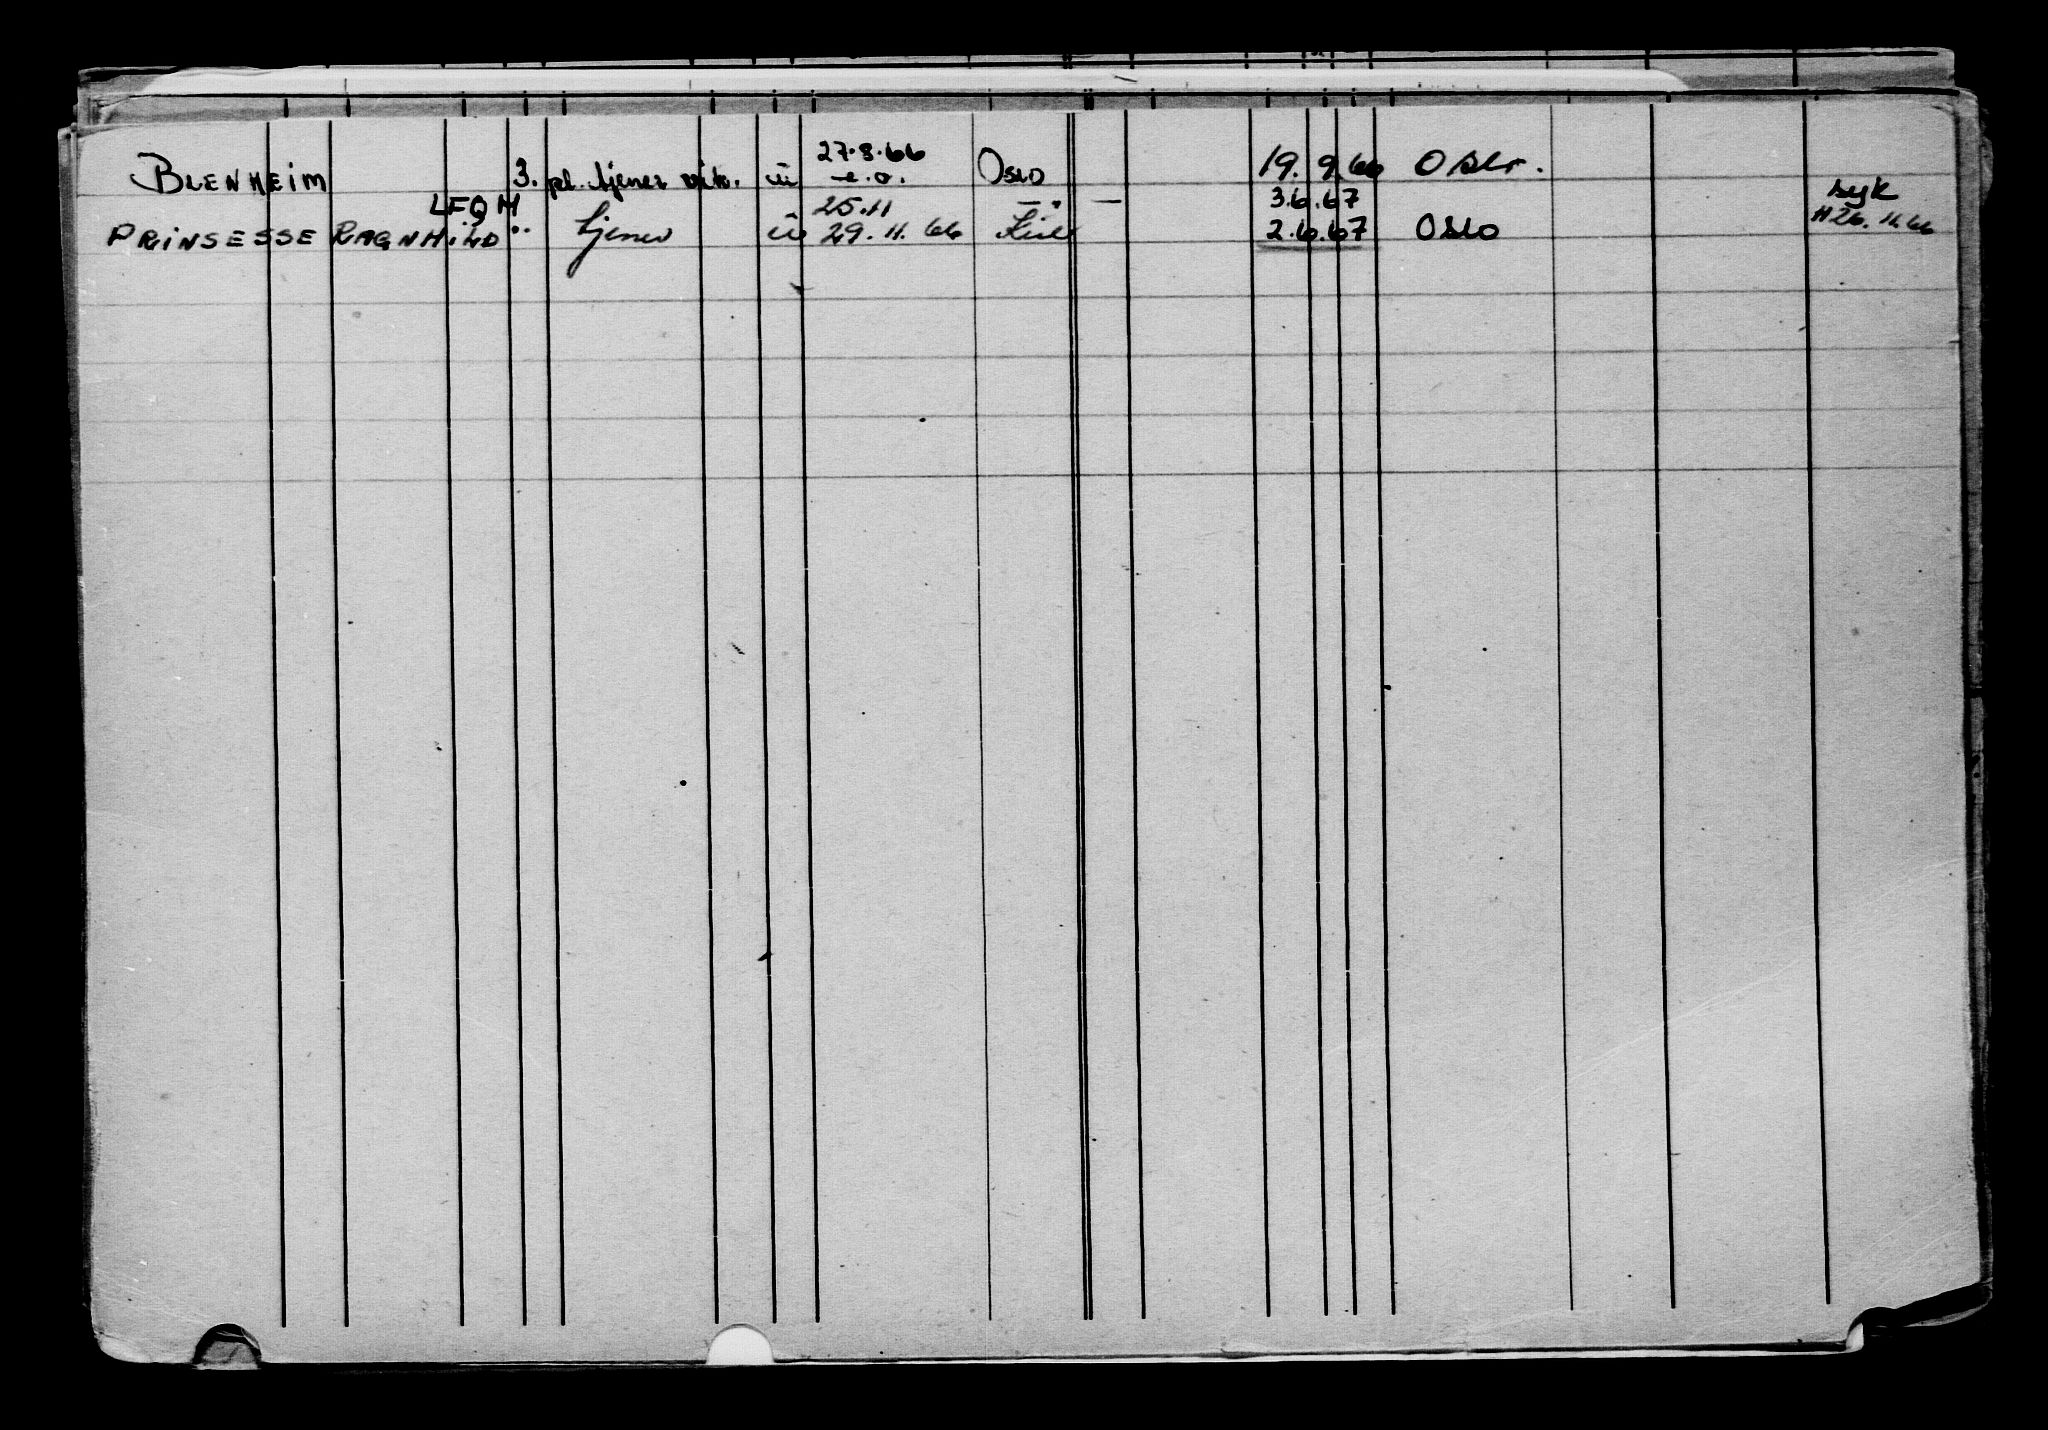 BLENHEIM 3. pl. tjener vik. ü 27.8.66 Oslo 19. 9. 66 Oslo.
e.o.
LFQM 25.11 — " — 3.6.67 syk
PRINSESSE RAGNHILD " tjener ü 29.11.66 Kiel 2.6.67 OSLO 26.11.66